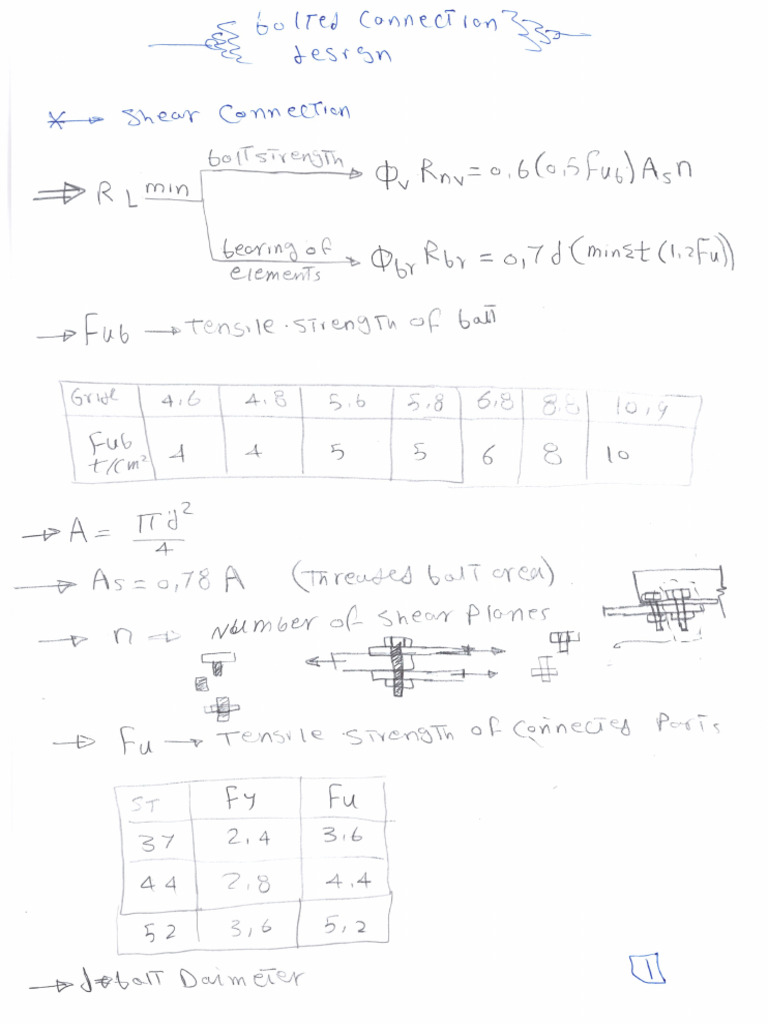 bolted connection
design
* → Shear Connection
⇒ RL min
bolt strength → ϕv Rnv = 0,6 (0,5 Fub) As n
bearing of elements → ϕbr Rbr = 0,7 d (min Σt (1,2 Fu))
→ Fub → Tensile strength of bolt
Gride 4,6 4,8 5,6 5,8 6,8 8,8 10,9
Fub t/cm² 4 4 5 5 6 8 10
→ A = πd²/4
→ As = 0,78 A (Threaded bolt area)
→ n → Number of Shear Planes
→ Fu → Tensile strength of Connected Parts
ST Fy Fu
37 2,4 3,6
44 2,8 4,4
52 3,6 5,2
→ d → bolt Daimeter
1